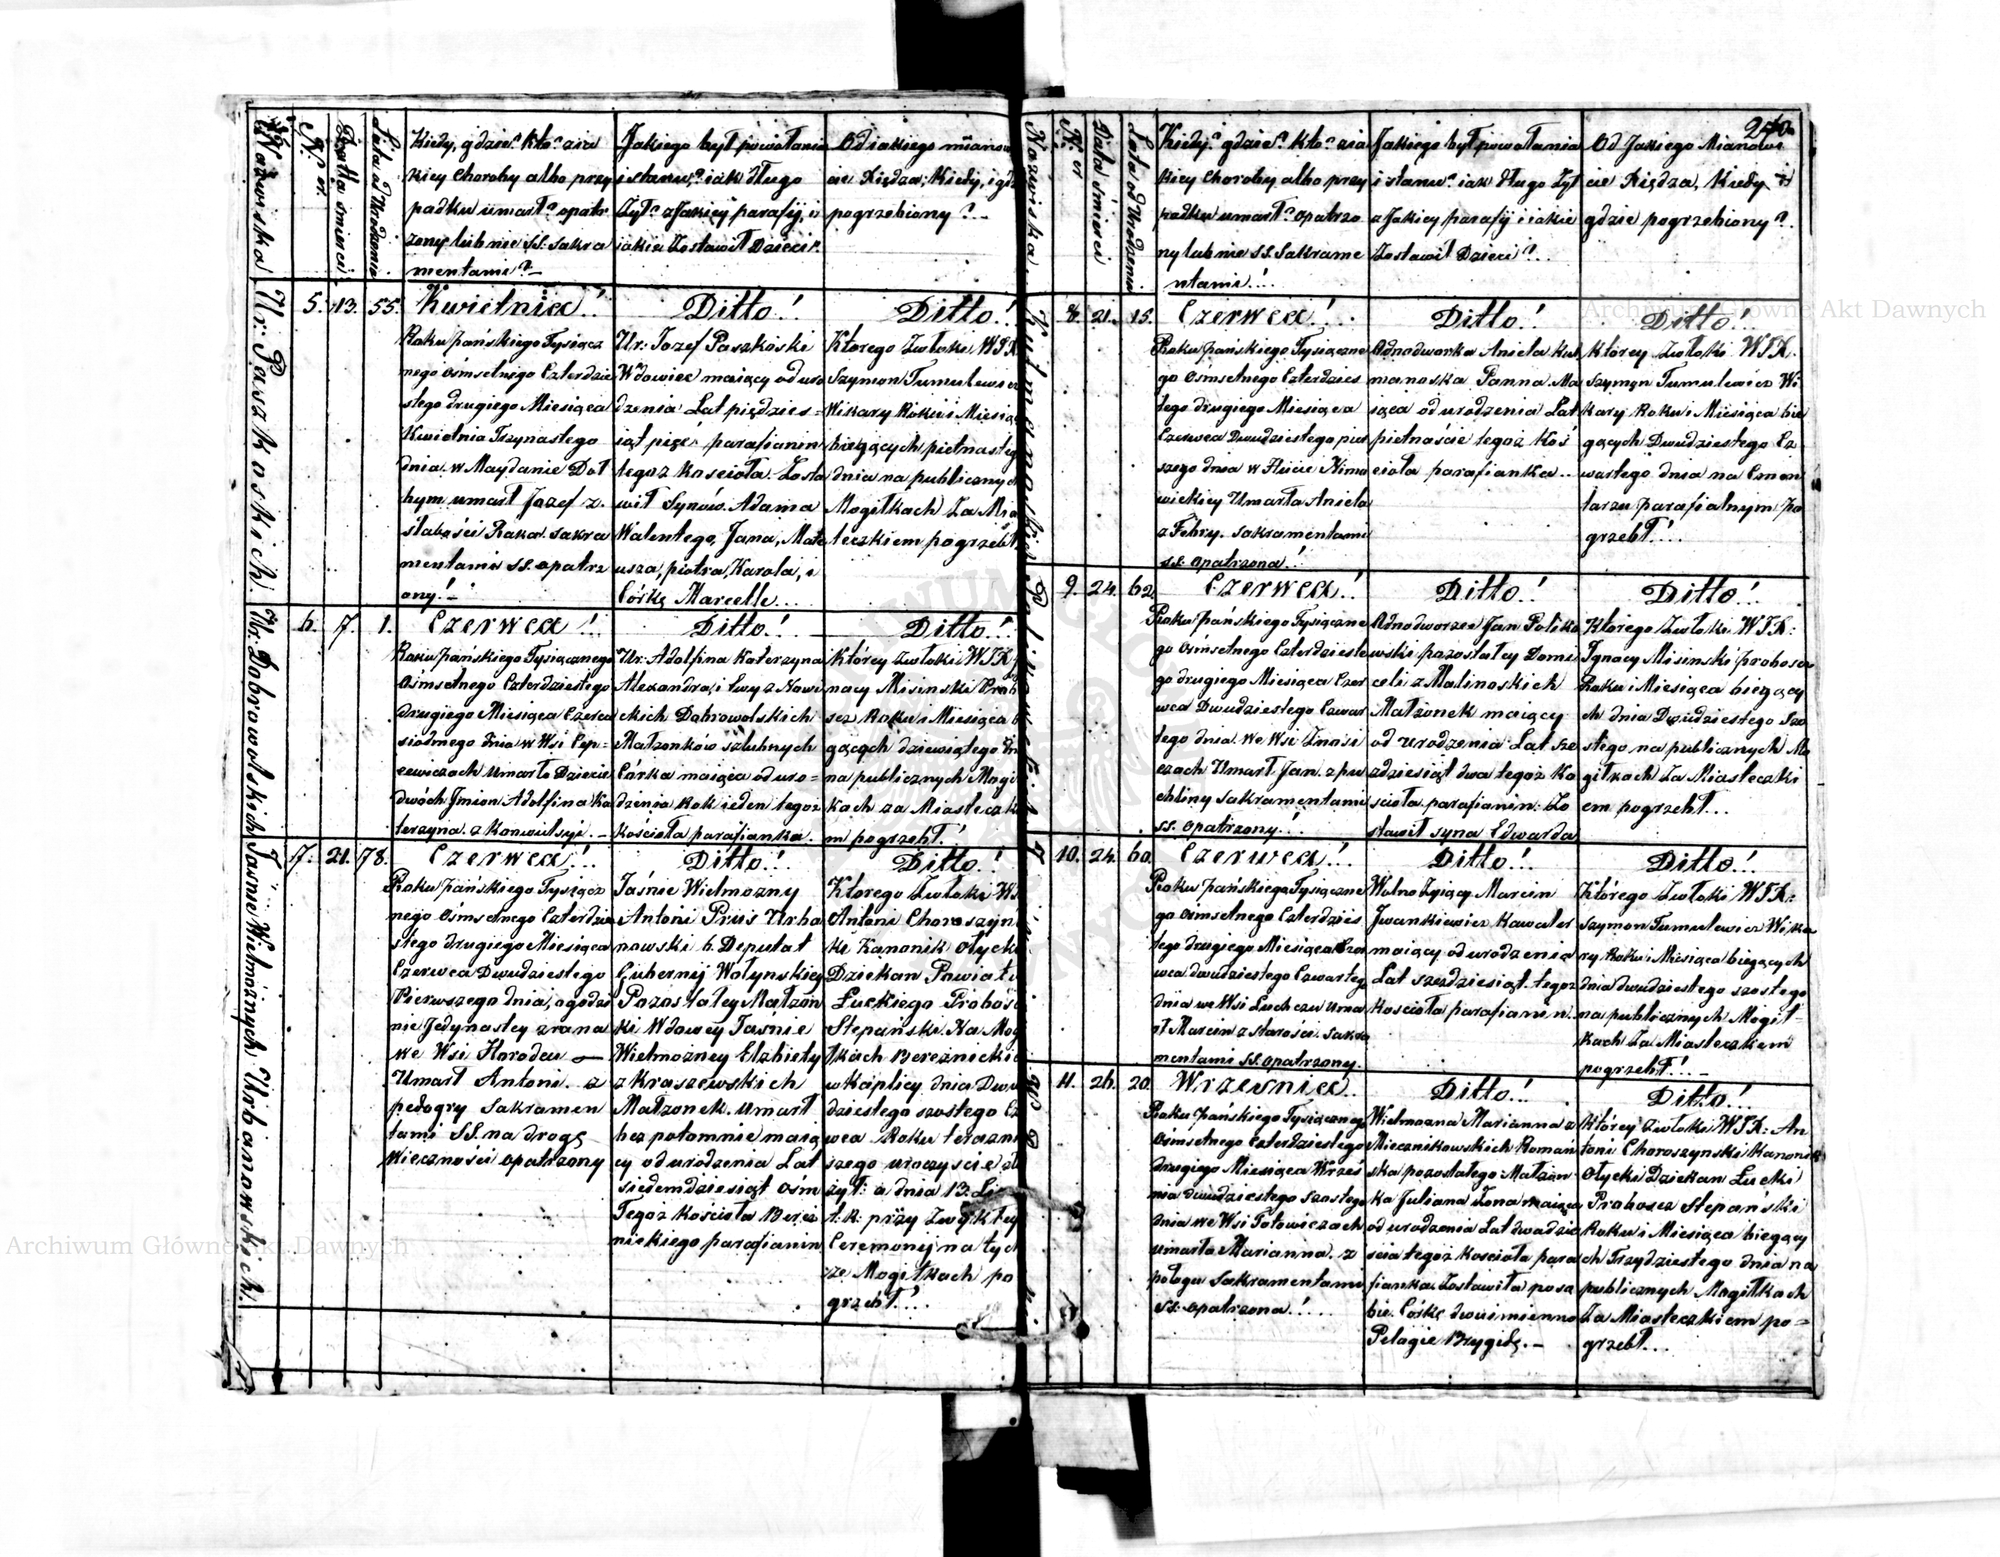 Nazwiska
N. er.
Data śmierci
Lata od Urodzenia
Kiedy, gdzie? kto? z ja
kiey choroby albo przy
padku umarł? opatr
zony lub nie SS. Sakra
mentami? —
Jakiego był powołania
i stanu? iak długo
żył? z Jakiey parafij, i
iakie Zostawił Dzieci?
Od iakiego mianow
cie Xiędza, Kiedy, i gdz
pogrzebiony? —
Ur: Paszkoskich.
5. 13. 55.
Kwietnia!
Roku pańskiego Tysiącz
nego Ośmsetnego Czterdzie
stego drugiego Miesiąca
Kwietnia Trzynastego
dnia w Maydanie Doł
hym umarł Jozef z
słabości Raka. Sakra
mentami SS. opatrz
ony! —
Ditto!
Ur: Jozef Paszkoski
Wdowiec maiący od uro
dzenia Lat pięćdzies-
iąt pięć parafianin
tegoż kościoła. Zosta
wił Synów. Adama
Walentego, Jana, Mate
usza, piotra, Karola, i
Córkę Marcelle...
Ditto!
Ktorego Zwłoki WJX.
Szymon Tumulewicz
Wikary Roku i Miesiąca
bieżących pietnastego
dnia na publicznych
Mogiłkach Za Mia
steczkiem pogrzebł
Ur. Dąbrowolskich
6. 7. 1.
Czerwca!
Roku pańskiego Tysiącznego
Ośmsetnego Czterdziestego
drugiego Miesiąca Czerwca
siódmego dnia w Wsi Cep-
cewiczach umarło Dziecie
dwóch Jmion Adolfina Ka
terzyna z Konwulsyi. —
Ditto!
Ur. Adolfina Katerzyna
Alexandra, i Ewy z Nowi
ckich Dąbrowolskich
Małżonków szlubnych
Córka maiąca od uro-
dzenia Rok ieden tegoż
kościoła parafianka.
Ditto!
Ktorey Zwłoki WJX Jg
nacy Misinski Prob
szcz Roku i Miesiąca b
gących dziewiątego dn
na publicznych Mogił
kach za Miasteczk
m pogrzebł!
Jaśnie Wielmożnych Urbanowskich.
7. 21. 78.
Czerwca!
Roku pańskiego Tysiącz
nego Ośmsetnego Czterdzie
stego drugiego Miesiąca
Czerwca Dwudziestego
Pierwszego dnia, o godzi
nie Jedynastey zrana
we Wsi Horodcu —
Umarł Antoni z
pedogry Sakramen
tami SS. na drogę
Wieczności opatrzony
Ditto!
Jaśnie Wielmozny
Antoni Prus Urba
nowski b. Deputat
Gubernij Wołynskiey
Pozostałey Małżon
ki Wdowey Jaśnie
Wielmożney Elżbiety
z Kraszewskich
Małżonek. Umarł
bez potomnie maią
cy od urodzenia Lat
siedemdziesiąt Ośm
Tegoż Kościoła Bereź
nickiego parafianin
Ditto!
Ktorego Zwłoki WJ
Antoni Choroszyn
ki Kanonik Ołycki
Dziekan Powiatu
Łuckiego Probosz
Stepański. Na Mog
iłkach Bereznickich
w kaplicy dnia Dwu
dziestego szostego Cz
wca Roku teraznie
szego uroczyście zło
żył: a dnia 13. Li
t. R. przy Zwykłey
Ceremonij na tych
że Mogiłkach po
grzebł!
240.
Nazwiska.
N. er
Data śmierci
Lata od Urodzenia
Kiedy? gdzie? kto? z ia
kiey choroby albo przy
padku umarł? opatrzo
ny lub nie SS. Sakrame
ntami!
Jakiego był powołania
i stanu? iak długo żył
z Jakiey parafij i iakie
Zostawił Dzieci?
Od Jakiego Mianowi
cie Xiędza, Kiedy i
gdzie pogrzebiony?
8. 21. 15.
Czerwca!
Roku pańskiego Tysiączne
go Ośmsetnego Czterdzies
tego drugiego Miesiąca
Czerwca Dwudziestego pier
szego dnia w Hucie Nimo
wickiey Umarła Aniela
z Febry. Sakramentami
SS. opatrzona!
Ditto!
Odnodworka Aniela Kul
manoska Panna Ma
iąca od urodzenia Lat
pietnaście tegoż Koś
cioła parafianka...
Ditto!
Którey Zwłoki WJX.
Szymon Tumulewicz Wi
kary Roku i Miesiąca bie
gących Dwudziestego Cz
wartego dnia na Cmen
tarzu parafialnym po
grzebł!
9. 24. 62.
Czerwca!
Roku pańskiego Tysiączne
go Ośmsetnego Czterdzieste
go drugiego Miesiąca Czer
wca Dwudziestego Czwar
tego dnia. We Wsi Znosi
czach Umarł Jan z pu
chliny Sakramentami
SS. opatrzony!
Ditto!
Odnodworzec Jan Poliko
wski pozostałey Domi
celi z Malinoskich
Małżonek maiący
od urodzenia Lat sze
zdziesiąt dwa tegoż Ko
ścioła parafianin. Zo
stawił syna Edwarda
Ditto!
Ktorego Zwłoki WJX:
Jgnacy Misinski probosz
Roku i Miesiąca bieżący
ch dnia Dwudziestego Szo
stego na publicznych Mo
giłkach Za Miasteczki
em pogrzebł...
10. 24. 60.
Czerwca!
Roku pańskiego Tysiączne
go Ośmsetnego Czterdzies
tego drugiego Miesiąca Czer
wca dwudziestego Czwartego
dnia we Wsi Luchczu Uma
rł Marcin z starości. Sakra
mentami SS. opatrzony.
Ditto!
Wolno Żyjący Marcin
Jwankiewicz Kawaler
maiący od urodzenia
Lat szeździesiąt. tegoż
Kościoła parafianin.
Ditto!
Którego Zwłoki WJX:
Szymon Tumulewicz Wika
ry Roku i Miesiąca bieżących
dnia dwudziestego szostego
na publicznych Mogił-
kach Za Miasteczkiem
pogrzebł! —
11. 26. 20.
Wrzesnia
Roku Pańskiego Tysiącznego
Ośmsetnego Czterdziestego
drugiego Miesiąca Wrześ
nia dwudziestego szostego
dnia we Wsi Tutowiczach
umarła Marianna z
połogu Sakramentami
SS. opatrzona!
Ditto!
Wielmożna Marianna z
Miecznikowskich Roman
ska pozostałego Małżon
ka Juliana Żona maiąca
od urodzenia Lat dwadzie
ścia tegoż kościoła para
fianka. Zostawiła po so
bie Córkę dwuimienną
Pelagię Brygidę. —
Ditto!
Którey Zwłoki WJX: An
toni Choroszynski Kanonik
Ołycki Dziekan Łucki
Probosz Stepański
Roku i Miesiąca biegący
ch Trzydziestego dnia na
publicznych Mogiłkach
Za Miasteczkiem po-
grzebł...
Archiwum Główne Akt Dawnych
Archiwum Główne Akt Dawnych